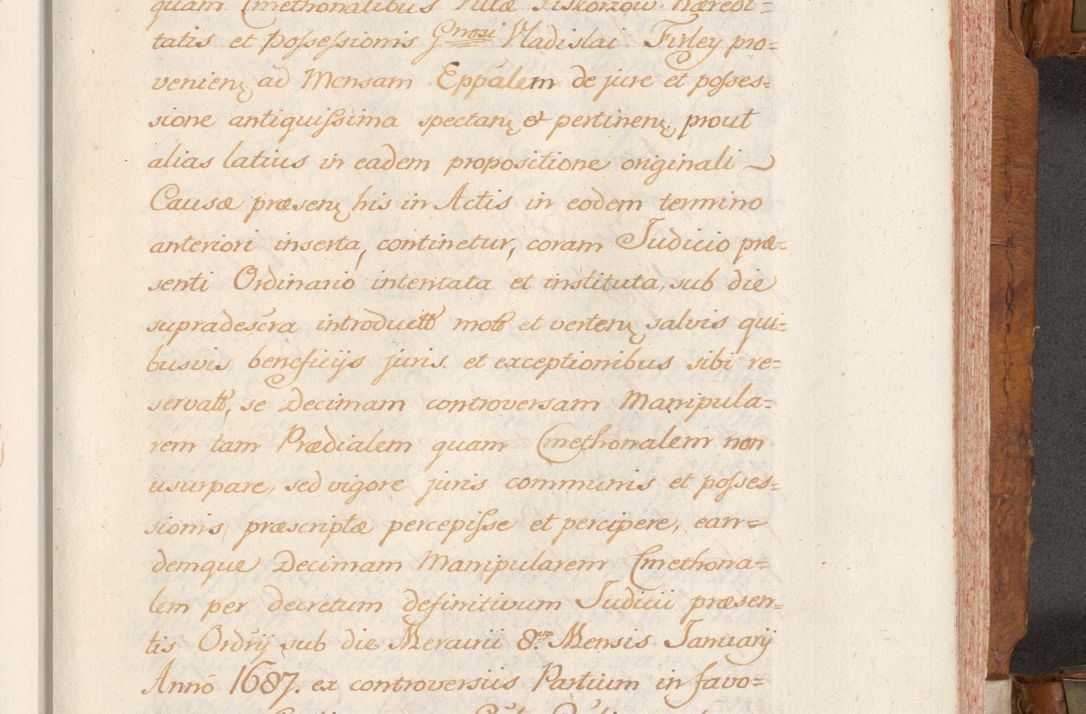 quam Cmethonalibus Villæ Piskorzow Hæredi=
tatis et Possessionis Gnrosi Vladislai Firley pro=
venienȩ ad Mensam Eppālem de jure et posses=
sione antiquissima spectanȩ et pertinenȩ, prout
alias latius in eadem propositione originali
Causæ præsenȩ his in Actis in eodem termino
anteriori inserta, continetur, coram Judicio præ=
senti Ordinario intentata et instituta, sub die
supradescra introductt mott et vertenȩ salvis qui=
busvis beneficijs juris et exceptionibus sibi re=
servatt, se Decimam controversam Manipula=
rem tam Prædialem quam Cmethonalem non
usurpare, sed vigore juris communis et posses=
sionis præscriptæ percepisse et percipere, ean=
demque Decimam Manipularem Cmethona=
lem per decretum definitivum Judicii præsen=
tis Ordrij sub die Mercurii 8vo Mensis Januarij
Anno 1687. ex controversiis Partium in favo=